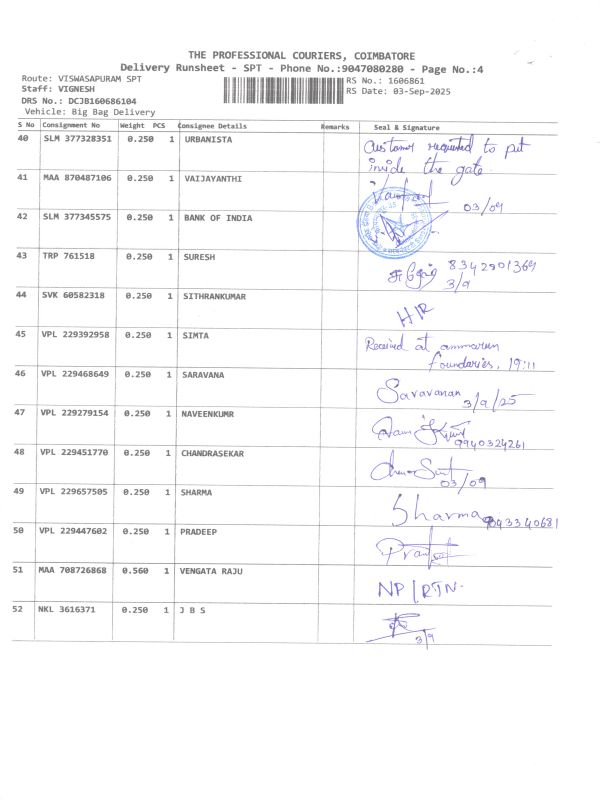 THE PROFESSIONAL COURIERS, COIMBATORE
Delivery Runsheet - SPT - Phone No.:9047080280 - Page No.:4
Route: VISWASAPURAM SPT
RS No.: 1606861
Staff: VIGNESH
RS Date: 03-Sep-2025
DRS No.: DCJB160686104
Vehicle: Big Bag Delivery
S No Consignment No Weight PCS Consignee Details Remarks Seal & Signature
40 SLM 377328351 0.250 1 URBANISTA Customer requested to put
inside the gate
41 MAA 870487106 0.250 1 VAIJAYANTHI
03/09
42 SLM 377345575 0.250 1 BANK OF INDIA
43 TRP 761518 0.250 1 SURESH 8342801369
3/9
44 SVK 60582318 0.250 1 SITHRANKUMAR
45 VPL 229392958 0.250 1 SIMTA Received at ammarun
foundaries, 19:11
46 VPL 229468649 0.250 1 SARAVANA Saravanan
3/9/25
47 VPL 229279154 0.250 1 NAVEENKUMR
9940324261
48 VPL 229451770 0.250 1 CHANDRASEKAR
03/09
49 VPL 229657505 0.250 1 SHARMA Sharma
50 VPL 229447602 0.250 1 PRADEEP
51 MAA 708726868 0.560 1 VENGATA RAJU NP/RTN-
52 NKL 3616371 0.250 1 J B S
3/9